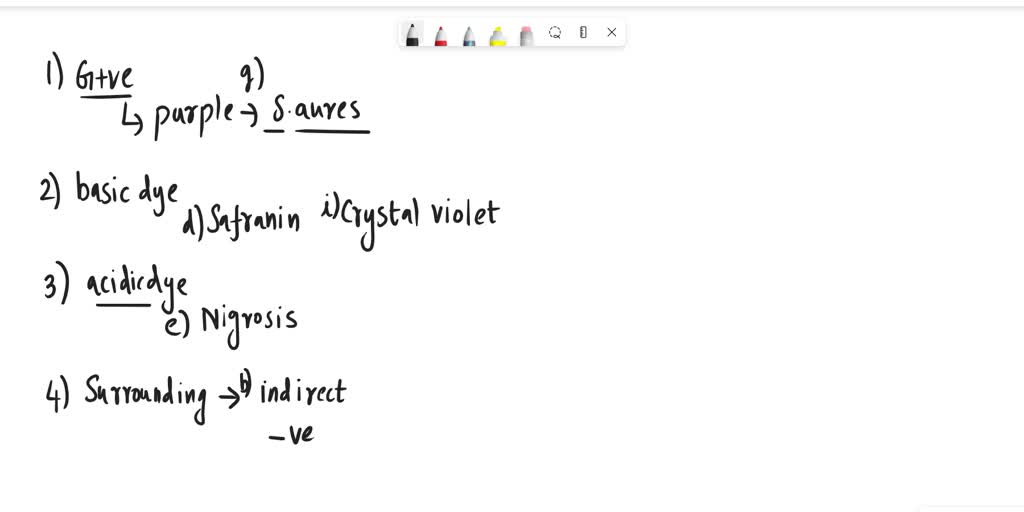 1) G+ve g)
↳ purple → S.aures
2) basic dye
d) Safranin i) Crystal violet
3) acidic dye
e) Nigrosis
4) Surrounding → b) indirect
-ve